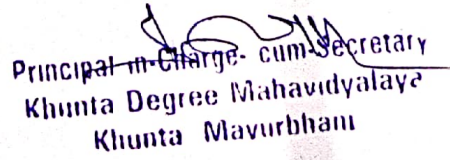 Principal-in-Charge-cum-Secretary
Khunta Degree Mahavidyalaya
Khunta Mayurbhanj